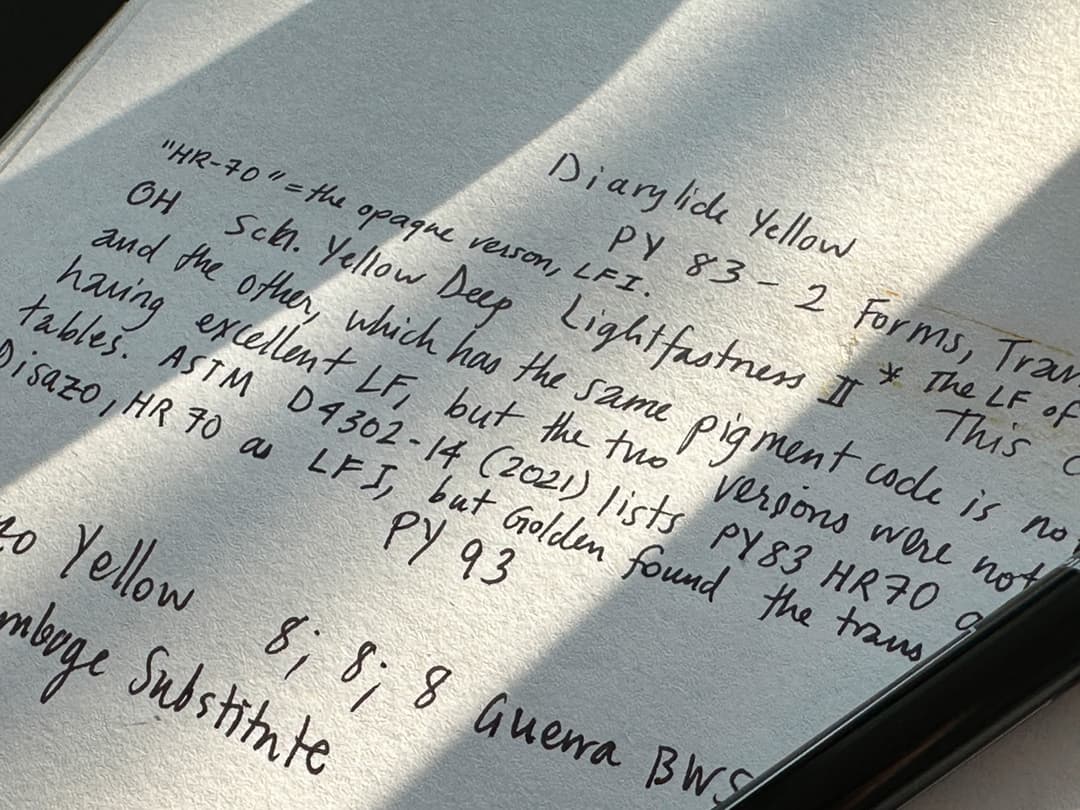 Diarylide Yellow
PY 83 - 2 Forms, Tran
"HR-70" = the opaque verson, LFI. * The LF of
OH Sch. Yellow Deep Lightfastness II This
and the other, which has the same pigment code is no
having excellent LF, but the two versions were not
tables. ASTM D4302-14 (2021) lists PY83 HR70
Disazo, HR 70 as LFI, but Golden found the trans
PY 93
zo Yellow 8; 8; 8 Guerra BWS
mboge Substitute